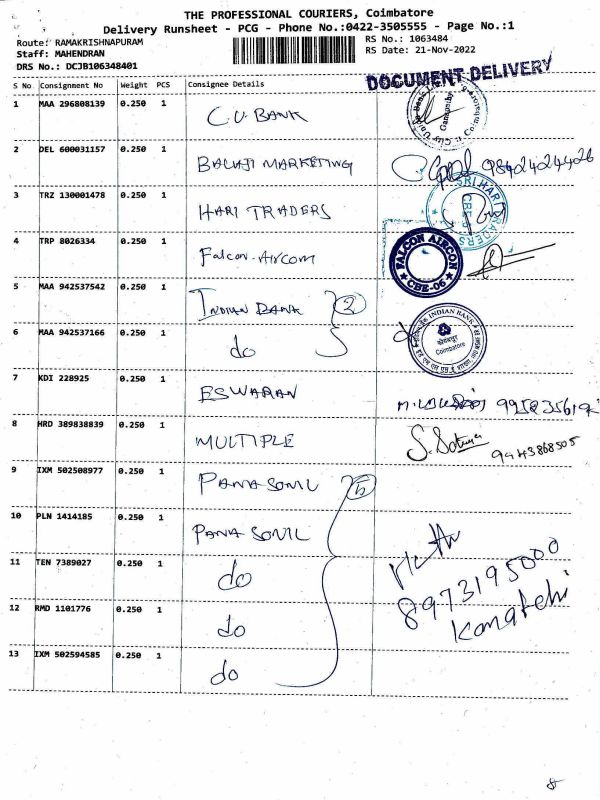 THE PROFESSIONAL COURIERS, Coimbatore
Delivery Runsheet - PCG - Phone No.:0422-3505555 - Page No.:1
Route: RAMAKRISHNAPURAM
RS No.: 1063484
Staff: MAHENDRAN
RS Date: 21-Nov-2022
DRS No.: DCJB106348401
DOCUMENT DELIVERY
S No Consignment No Weight PCS Consignee Details
1 MAA 296808139 0.250 1 C.U. BANK
2 DEL 600031157 0.250 1 BALAJI MARKETING 9842424426
3 TRZ 130001478 0.250 1 HARI TRADERS
SRI HARI TRADERS
4 TRP 8026334 0.250 1 Falcon-Aircom
FALCON AIRCON
CBE-06
5 MAA 942537542 0.250 1 INDIAN BANK 2
INDIAN BANK
Coimbatore
6 MAA 942537166 0.250 1 do
7 KDI 228925 0.250 1 ESWARAN
8 HRD 389838839 0.250 1 MULTIPLE 9443868505
9 IXM 502508977 0.250 1 PANASONIC 5
10 PLN 1414185 0.250 1 PANASONIC
11 TEN 7389027 0.250 1 do
8973195000
12 RMD 1101776 0.250 1 do
13 IXM 502594585 0.250 1 do